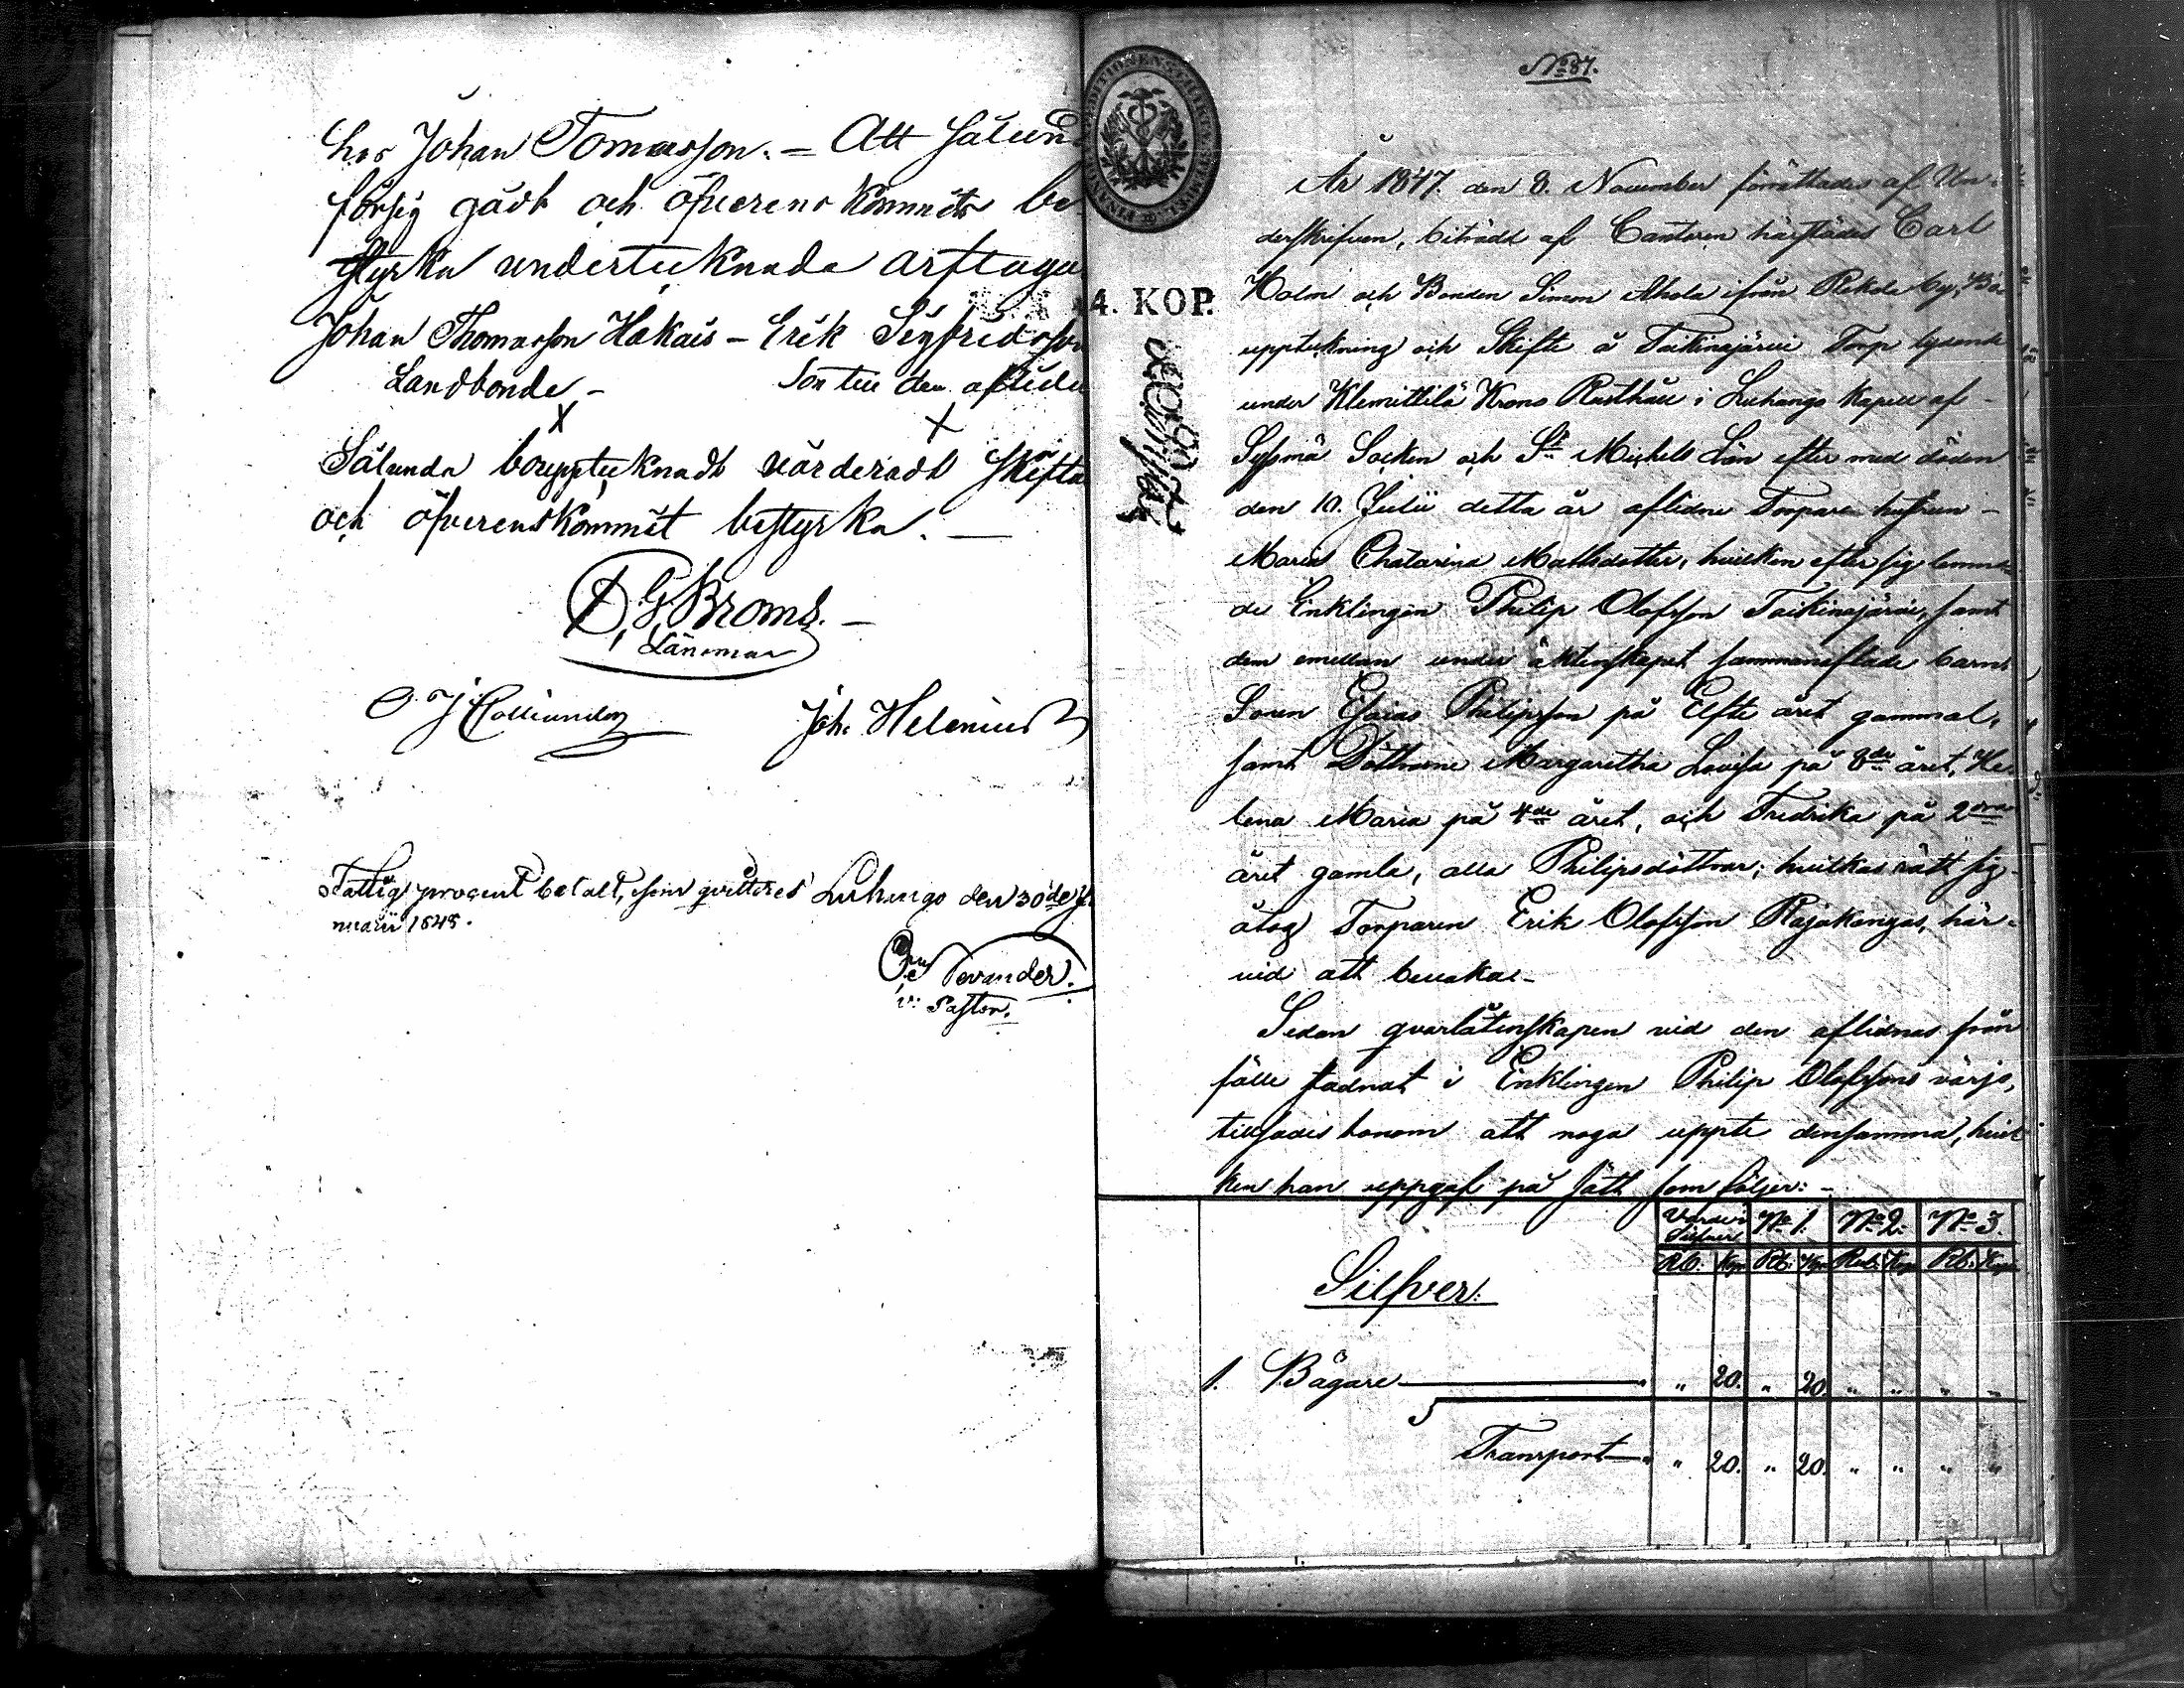 hos Johan Tomasson. – Att sålun
försig gådt och öfverens kommits be
styrka undertecknade arftaga
Johan Thomasson Hakais – Erik Sigfridsson
Landbonde – Son till den aflidn
X X
Sålunda bouppteeknadt värderadt skifta
och öfverenskommit bestyrka. –
G Broms. –
Länsman
Joh. Helenius
Fattig procent betalt, som qvitteras Luhango den 30de Ja
nuarii 1848.
Pastor.
No 87.
4. KOP.
År 1847. den 8. November förrättades af Un-
derskrifven, biträdd af Cantoren härstädes Carl
Holm och Bonden Simon Ahola ifrån by, Bo
uppteckning och Skifte å Taikinajärvi Torp lydande
under Klemittilä Krono Rusthåll i Luhango Kapell af
Sysmä Socken och St Michels Län efter med döden
den 10. Julii detta år aflidne Torpare hustrun –
Maria Chatarina Mattsdotter, hvilken efter sig lemna-
de Enklingen Philip Olofsson Taikinajärvi, samt
dem emellan under äktenskapet sammanaflade barn:
Sonen Esaias Philipsson på Elfte året gammal,
samt Döttrarne Margaretha Lovisa på 8de året, He-
lena Maria på 4de året, och Fredrika på 2dra
året gamla, alla Philipsdöttrar; hvilkas rätt sig
åtog Torparen Erik Olofsson Rajakangas, här-
vid att bevaka –
Sedan qvarlåtenskapen vid den aflidnas från
fälle stadnat i Enklingen Philip Olofssons värjo,
tillsades honom att noga uppte densamma, hvil
ken han uppgaf på sätt som följer: –
Värder Silfver No 1. No 2. No 3.
Rb. Kop Rb: Kop Rub: Kop Rb: Kop
Silfver:
1. Bågare " 20. " 20. " " " "
Transport " 20. " 20. " " " "